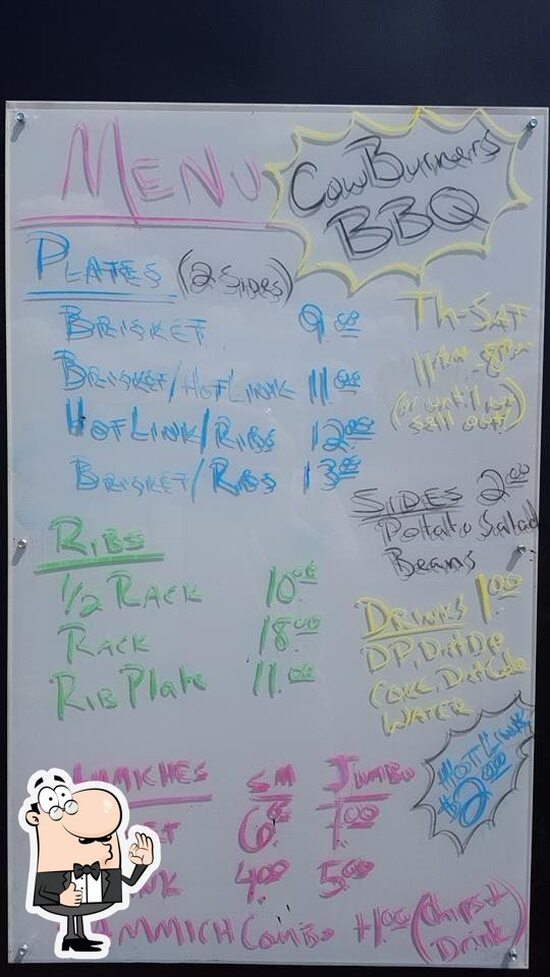 MENU
CowBurners
BBQ
PLATES (2 SIDES)
BRISKET 9.00
BRISKET/HOTLINK 11.00
HOTLINK/RIBS 12.00
BRISKET/RIBS 13.00
TH-SAT
11AM-8PM
(or until we
sell out)
SIDES 2.00
Potato Salad
Beans
RIBS
1/2 RACK 10.00
RACK 18.00
RIB Plate 11.00
DRINKS 1.00
DP, Diet DP
COKE, Diet Coke
WATER
HOTLINK
$2.00
SM JUMBO
6.00 7.00
4.00 5.00
Combo +1.00 (Chips +
Drink)